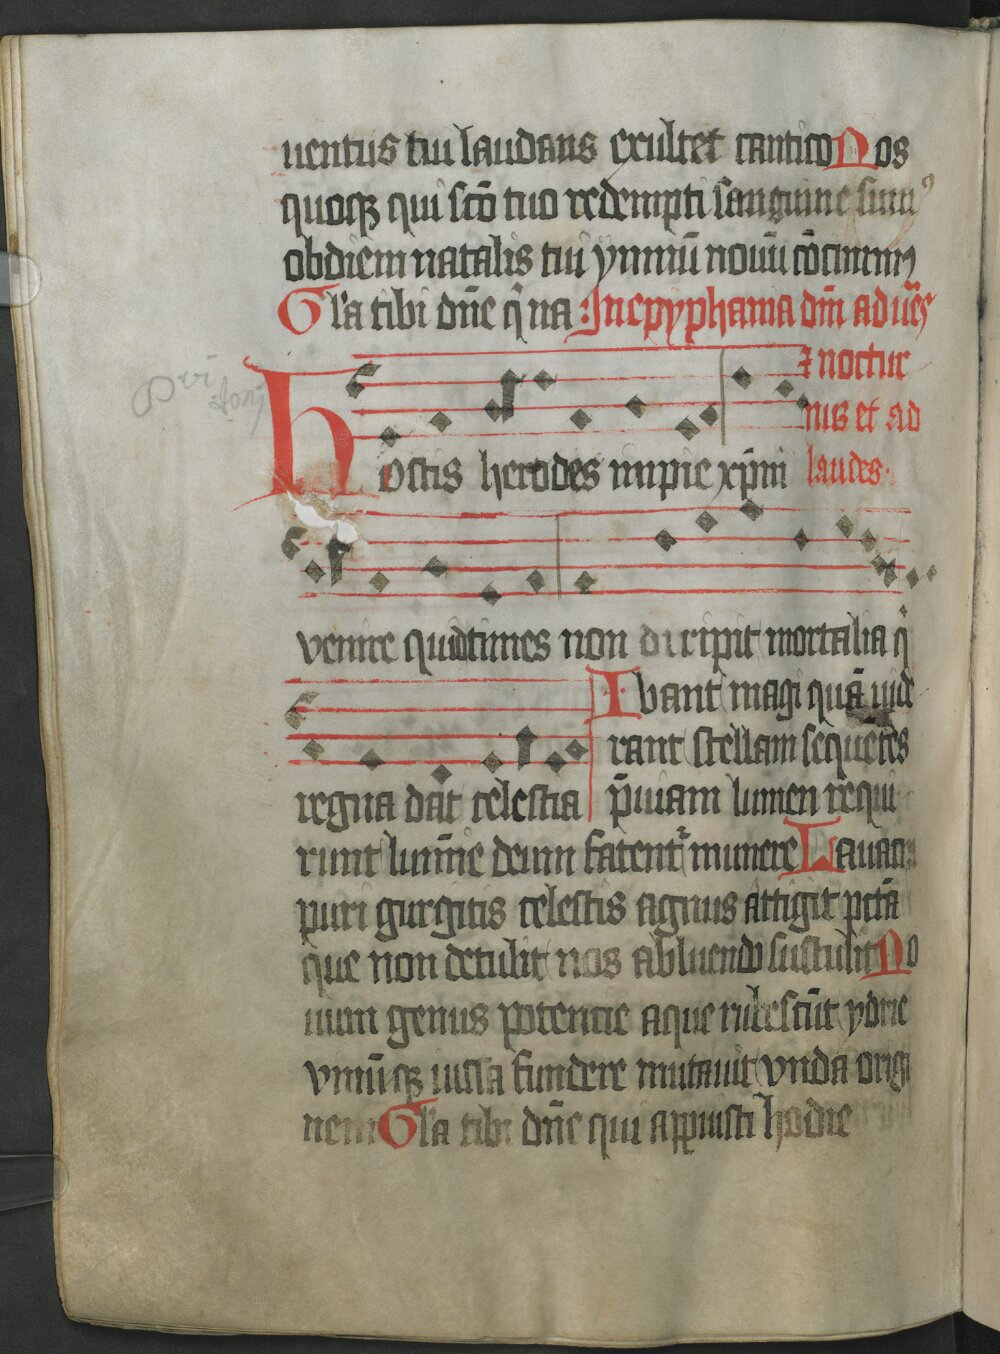 uentus tui laudans exultet cantico Nos
quoqꝫ qui scō tuo redempti sanguine sumꝰ
obdiem natalis tui ymnū nouū cōcinimꝰ
Gl'a tibi dn̄e q̇ na In epyphania dm̄ ad ūēs
⁊ noctur
nis et ad
laudes.
Hostis herodes impie xp̄m
venire quid times non diripit mortalia q̇
regna dat celestia
Ibant magi quā uide
rant stellam sequētes
p̄uiam lumen requi
runt lumīe deum fatent᷑ munere Lauacra
puri gurgitis celestis agnus attigit pctā
que non detulit nos abluendo sustulit No
uum genus potencie aque rubescūt ydrie
vinūqꝫ iussa fundere mutauit vnda origi
nem Gl'a tibi dn̄e qui apparuisti hodie